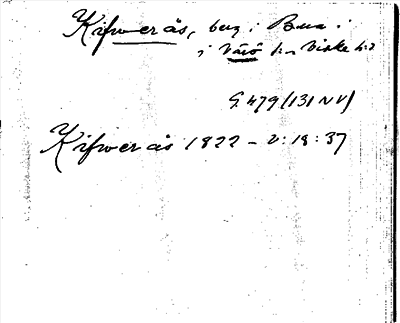 Kifwerås, berg i Bua i
i Värö sn Viske hd
G. 479 (131 NV)
Kifwerås 1822 - V: 18: 37